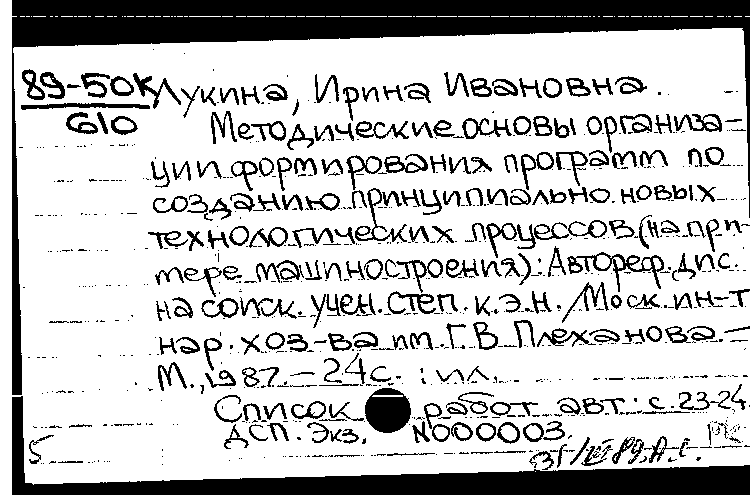 89-50К Лукина, Ирина Ивановна.
610
Методические основы организа-
ции формирования программ по
созданию принципиально новых
технологических процессов (на при-
мере машиностроения): Автореф. дис.
на соиск. учен. степ. к.э.н. / Моск. ин-т
нар. хоз-ва им. Г.В Плеханова.-
М., 1987. - 24с. : ил.
Список работ авт.: с. 23-24.
ДСП. Экз. N000003.
5